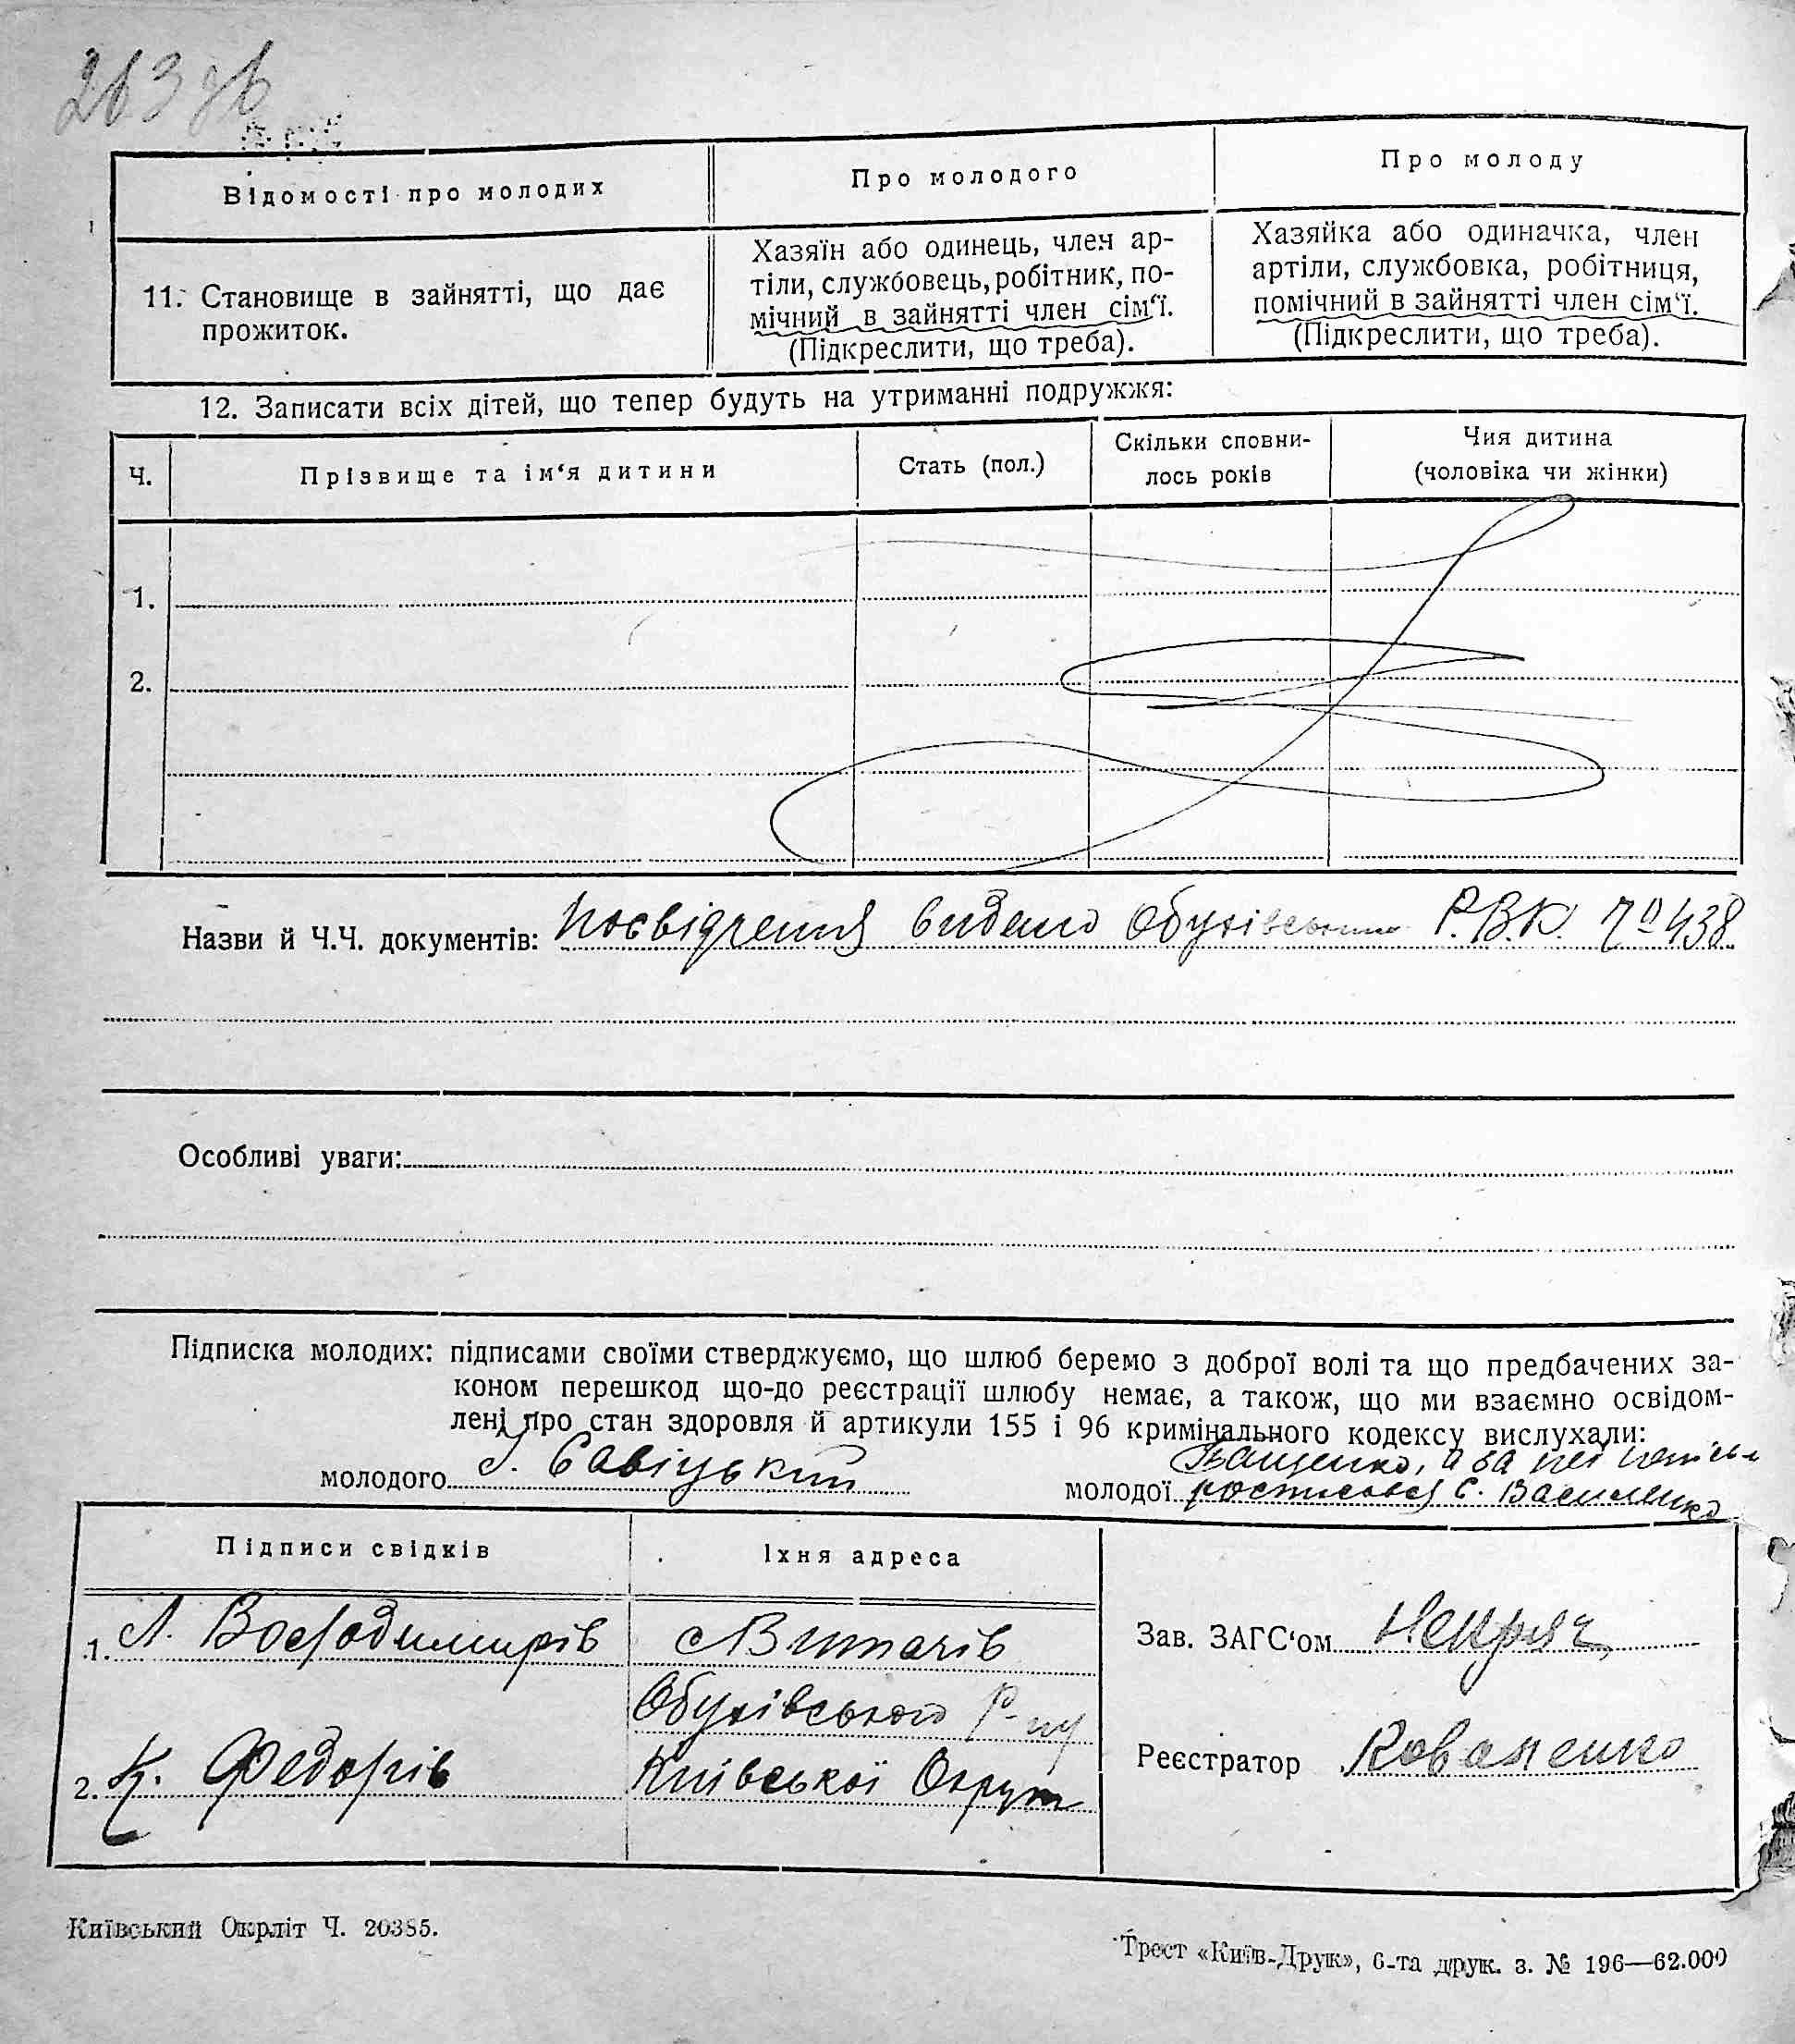 263 зв
Відомості про молодих
Про молодого
Про молоду
11. Становище в зайнятті, що дає
прожиток.
Хазяїн або одинець, член ар-
тіли, службовець, робітник, по-
мічний в зайнятті член сім‘ї.
(Підкреслити, що треба).
Хазяйка або одиначка, член
артіли, службовка, робітниця,
помічний в зайнятті член сім‘ї.
(Підкреслити, що треба).
12. Записати всіх дітей, що тепер будуть на утриманні подружжя:
Ч.
Прізвище та ім‘я дитини
Стать (пол.)
Скільки сповни-
лось років
Чия дитина
(чоловіка чи жінки)
1.
2.
Назви й Ч.Ч. документів: Посвідчення видано Обухівським Р.В.К. № 438
Особливі уваги:
Підписка молодих: підписами своїми стверджуємо, що шлюб беремо з доброї волі та що предбачених за-
коном перешкод що-до реєстрації шлюбу немає, а також, що ми взаємно освідом-
лені про стан здоровля й артикули 155 і 96 кримінального кодексу вислухали:
молодого Савіцький
Іващенко, а за неї
молодої росписався С. Василенко
Підписи свідків
Їхня адреса
1. Л. Володимирів
с Витачів
Обухівського Р-ну
2. К. Федорів
Київської Округи
Зав. ЗАГС‘ом
Реєстратор Коваленко
Київський Окрліт Ч. 20385.
Трест «Київ-Друк», 6-та друк. з. № 196—62.000